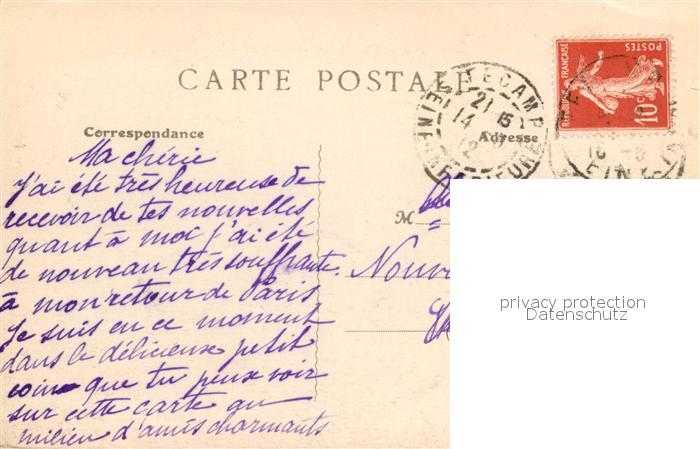 CARTE POSTALE
FECAMP
21 15
14
12
SEINE INFERIEURE
POSTES
REPUBLIQUE FRANÇAISE
10c
Correspondance
Adresse
Ma chérie
J'ai été très heureuse de
recevoir de tes nouvelles
quant à moi j'ai été
de nouveau très souffrante.
à mon retour de Paris
Je suis en ce moment
dans le délicieuse petit
coin que tu peux voir
sur cette carte au
milieu d'amis charmants
M
Nouv
privacy protection
Datenschutz